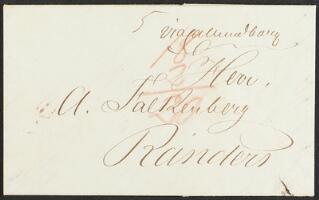 5 via Callundborg
18
2
Herr.
A. Falkenberg
20
Randers